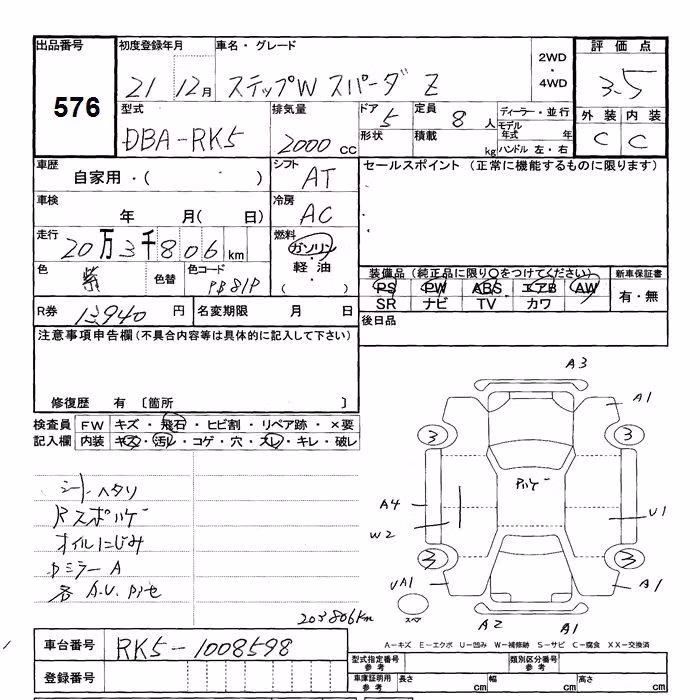 出品番号 初度登録年月 車名・グレード 評価点
576
21 12月 ステップW スパーダ Z 2WD・4WD 3.5
型式 排気量 ドア 定員 ディーラー・並行 外装 内装
DBA-RK5 2000cc 5 8人 モデル年式 年 C C
形状 積載 kg ハンドル 左・右
車歴 シフト セールスポイント (正常に機能するものに限ります)
自家用・( ) AT
車検 冷房
年 月( 日) AC
走行 燃料
20万3千806km ガソリン・軽油・( )
色 色替 色コード 装備品 (純正品に限り○をつけてください) 新車保証書
紫 PB81P PS PW ABS エアB AW 有・無
SR ナビ TV カワ
R券 円 名変期限 月 日 後日品
注意事項申告欄 (不具合内容等は具体的に記入して下さい)
修復歴 有 〔箇所 〕
検査員 FW キズ・飛石・ヒビ割・リペア跡・×要
記入欄 内装 キズ・汚レ・コゲ・穴・スレ・キレ・破レ
シートヘタリ
Rスポハゲ
オイルにじみ
Dミラー A
各 A.U. Pite
203806Km
A3
A1
3 3
Pハゲ
A4
W2
U1
3 3
UA1
A1
スペア
A2 A1
A-キズ E-エクボ U-凹み W-補修跡 S-サビ C-腐食 XX-交換済
車台番号 RK5-1008598
登録番号
型式指定番号 参考 類別区分番号 参考
車庫証明用 参考 長さ cm 幅 cm 高さ cm